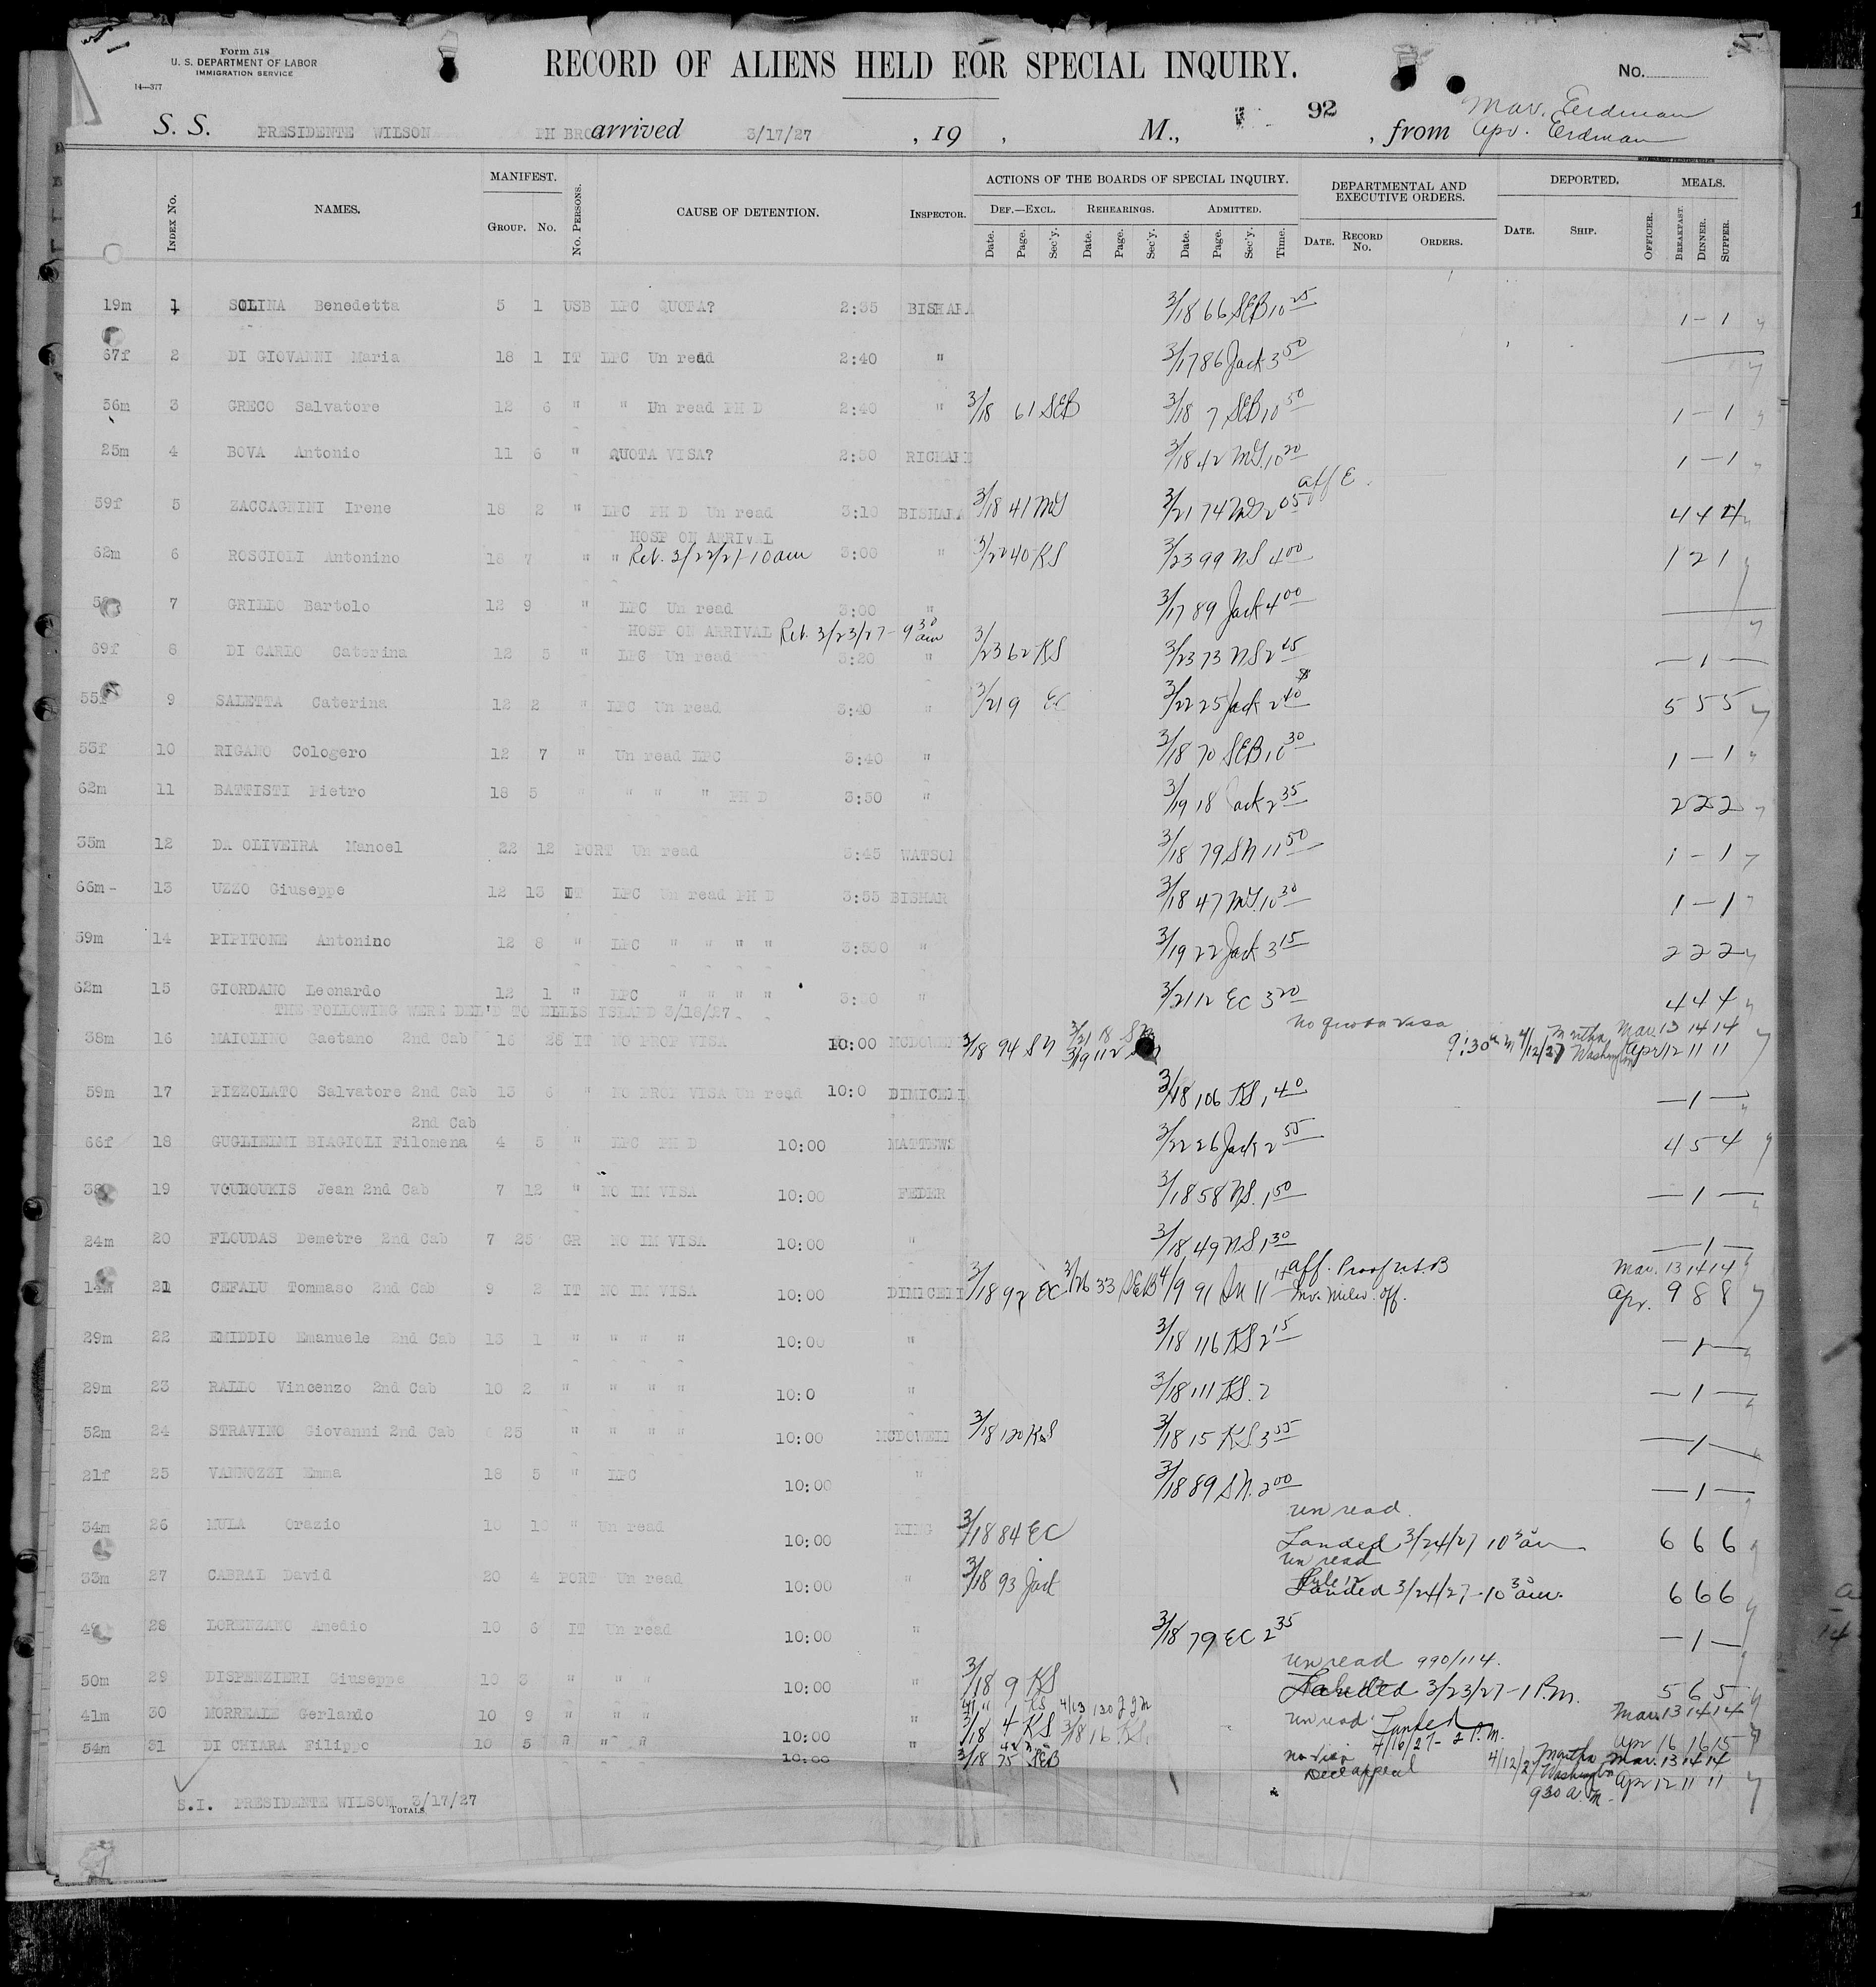 Form 518
U. S. DEPARTMENT OF LABOR
IMMIGRATION SERVICE
14—377
RECORD OF ALIENS HELD FOR SPECIAL INQUIRY.
No.
S. S. PRESIDENTE WILSON PH BRO arrived 3/17/27 , 19 , M., 92 , from Mar. Erdman
Apr. Erdman
INDEX No. NAMES. MANIFEST. GROUP. No. No. PERSONS. CAUSE OF DETENTION. INSPECTOR. ACTIONS OF THE BOARDS OF SPECIAL INQUIRY. DEPARTMENTAL AND EXECUTIVE ORDERS. DEPORTED. MEALS.
DEF.—EXCL. REHEARINGS. ADMITTED.
Date. Page. Sec'y. Date. Page. Sec'y. Date. Page. Sec'y. Time. DATE. RECORD No. ORDERS. DATE. SHIP. OFFICER. BREAKFAST. DINNER. SUPPER.
19m 1 SOLINA Benedetta 5 1 USB LPC QUOTA? 2:35 BISHARA 3/18 66 SEB 10 25 1 — 1
67f 2 DI GIOVANNI Maria 18 1 IT LPC Un read 2:40 " 3/17 86 Jack 3 50
56m 3 GRECO Salvatore 12 6 " " Un read PH D 2:40 " 3/18 61 SEB 3/18 7 SEB 10 50 1 — 1
25m 4 BOVA Antonio 11 6 " QUOTA VISA? 2:50 RICHARD 3/18 42 MG 10 20 1 — 1
aff E.
59f 5 ZACCAGNINI Irene 18 2 " LPC PH D Un read 3:10 BISHARA 3/18 41 MG 3/21 74 MG 2 05 4 4 4
HOSP ON ARRIVAL
62m 6 ROSCIOLI Antonino 18 7 " " Ret. 3/22/27 10am 3:00 " 3/22 40 KS 3/23 99 NS 4 00 1 2 1
7 GRILLO Bartolo 12 9 " LPC Un read 3:00 " 3/17 89 Jack 4 00
HOSP ON ARRIVAL Ret. 3/23/27 - 9 30 am
69f 8 DI CARLO Caterina 12 5 " LPC Un read 3:20 " 3/23 62 KS 3/23 73 NS 2 45 — 1 —
55f 9 SALETTA Caterina 12 2 " LPC Un read 3:40 " 3/21 9 EC 3/22 25 Jack 2 40 5 5 5
55f 10 RIGANO Cologero 12 7 " Un read LPC 3:40 " 3/18 70 SEB 10 30 1 — 1
62m 11 BATTISTI Pietro 18 5 " " " " PH D 3:50 " 3/19 18 Jack 2 35 2 2 2
35m 12 DA OLIVEIRA Manoel 22 12 PORT Un read 3:45 WATSON 3/18 79 SN 11 50 1 — 1
66m - 13 UZZO Giuseppe 12 13 IT LPC Un read PH D 3:55 BISHAR 3/18 47 MG 10 30 1 — 1
59m 14 PIPITONE Antonino 12 8 " LPC " " " " 3:50 " 3/19 22 Jack 3 15 2 2 2
62m 15 GIORDANO Leonardo 12 1 " LPC " " " " " 3/21 12 EC 3 20 4 4 4
THE FOLLOWING WERE DEL'D TO ELLIS ISLAND 3/18/27
no quota visa
38m 16 MAIOLINO Gaetano 2nd Cab 16 28 IT NO PROP VISA 10:00 MCDOWELL 3/18 94 SN 3/21 18 3/19 112 9:30 am 4/12/27 Martha Washington Mar. 13 14 14
Apr 12 11 11
59m 17 PIZZOLATO Salvatore 2nd Cab 13 6 " NO PROP VISA Un read 10:0 DIMICELI 3/18 106 KS 1 40 — 1 —
2nd Cab
66f 18 GUGLIELMI BIAGIOLI Filomena 4 5 " LPC PH D 10:00 MATTEWS 3/22 26 Jack 2 55 4 5 4
19 VOUDOUKIS Jean 2nd Cab 7 12 " NO IM VISA 10:00 FEDER 3/18 58 NS 1 50 — 1 —
24m 20 FLOUDAS Demetre 2nd Cab 7 25 GR NO IM VISA 10:00 " 3/18 49 NS 1 30 — 1 —
14m 21 CEFALU Tommaso 2nd Cab 9 2 IT NO IM VISA 10:00 DIMICELI 3/18 92 EC 3/26 33 SEB 4/9 91 SN 11 aff. Proof U.S.B Mar. 13 14 14
Apr. 9 8 8
29m 22 EMIDDIO Emanuele 2nd Cab 13 1 " " " " 10:00 " 3/18 116 KS 2 15 — 1 —
29m 23 RALLO Vincenzo 2nd Cab 10 2 " " " " 10:0 " 3/18 111 KS. 2 — 1 —
52m 24 STRAVINO Giovanni 2nd Cab 25 " " " " 10:00 MCDOWELL 3/18 120 KS 3/18 15 KS 3 55 — 1 —
21f 25 VANNOZZI Emma 18 5 " LPC 10:00 " 3/18 89 SN. 2 00 — 1 —
un read.
34m 26 MULA Orazio 10 10 " Un read 10:00 KING 3/18 84 EC Landed 3/24/27 10 30 am 6 6 6
un read
Rule 12
33m 27 CABRAL David 20 4 PORT Un read 10:00 " 3/18 93 Jack Landed 3/24/27 - 10 30 am. 6 6 6
28 LORENZANO Amedio 10 6 IT Un read 10:00 " 3/18 79 EC 2 35 — 1 —
un read 990/114.
50m 29 DISPENZIERI Giuseppe 10 3 " " " 10:00 " 3/18 9 KS Landed 3/23/27 - 1 P.m. 5 6 5
41m 30 MORREALE Gerlando 10 9 " " " 10:00 " 3/18 4 KS 3/18 16 KS 4/13 130 JJM un read Landed 4/16/27 - 2 P.M. Mar. 13 14 14
Apr 16 16 15
54m 31 DI CHIARA Filippo 10 5 " " " 10:00 " 3/18 75 SEB no visa appeal 4/12/27 Martha Washington 9 30 a.m. Mar. 13 14 14
Apr 12 11 11
S.I. PRESIDENTE WILSON 3/17/27
TOTALS